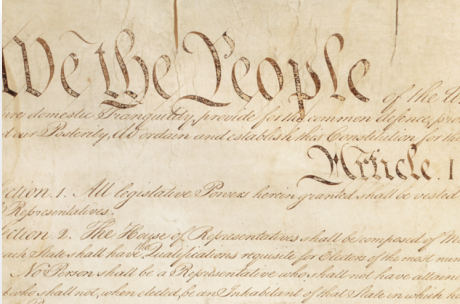 We the People of the U
ure domestic Tranquility, provide for the common defence, pro
d our Posterity, do ordain and establish this Constitution for th
Article. I
ction. 1. All legislative Powers herein granted shall be vested
Representatives.
ction. 2. The House of Representatives shall be composed of M
each State shall have the Qualifications requisite for Electors of the most num
No Person shall be a Representative who shall not have attain
who shall not, when elected, be an Inhabitant of that State in which h